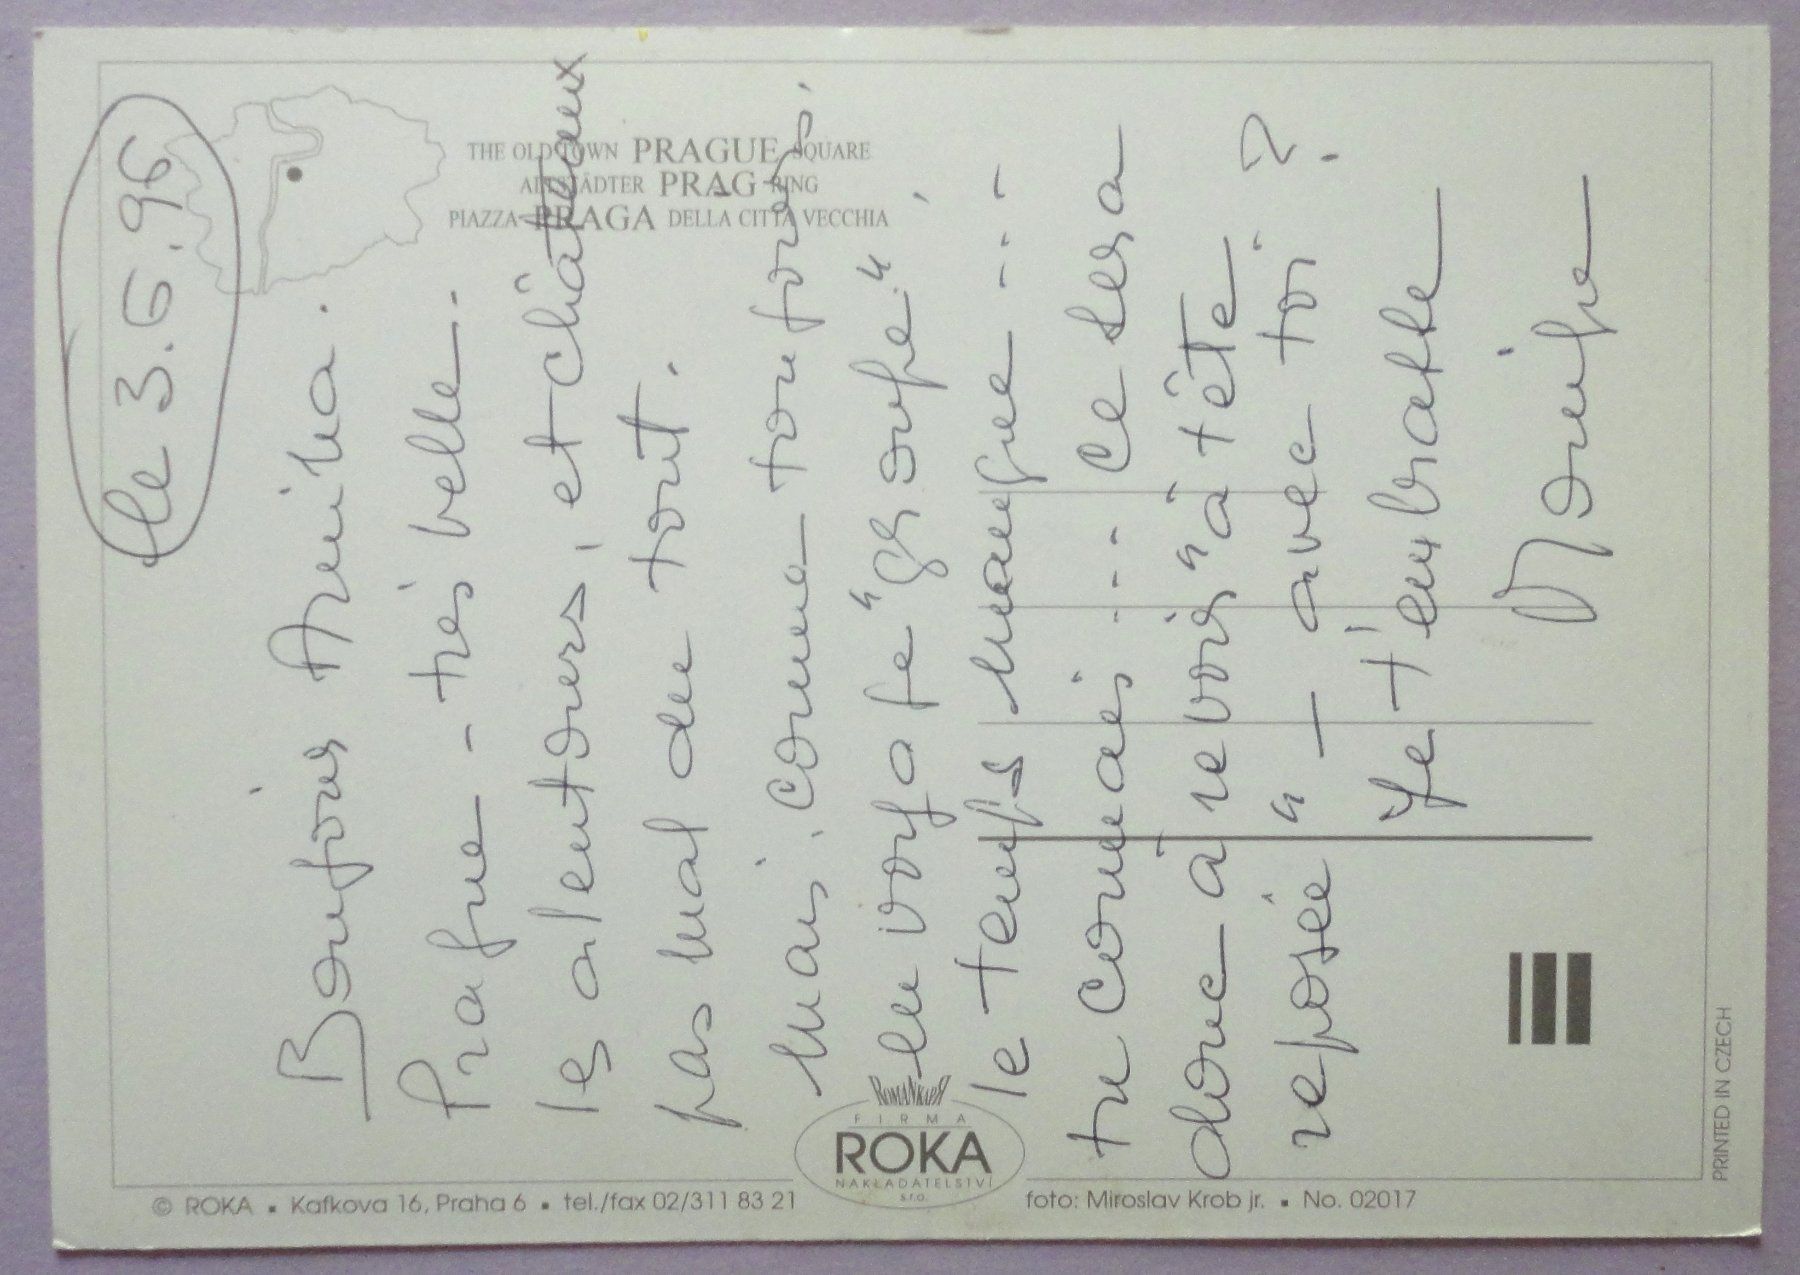 THE OLD TOWN PRAGUE SQUARE
ALTSTÄDTER PRAG RING
PIAZZA PRAGA DELLA CITTÀ VECCHIA
le 3.6.96
Bonjour
Prague - très belle.
les alentours, et châteaux
pas mal du tout.
Mais, comme toujours.
en voyage "groupe"
le temps manque ...
tu connais ... Ce sera
donc à revoir "à tête
reposée" — avec toi ?
Je t'embrasse
ROMANKAPR
FIRMA
ROKA
NAKLADATELSTVÍ
s.r.o.
© ROKA ▪ Kafkova 16, Praha 6 ▪ tel./fax 02/311 83 21
foto: Miroslav Krob jr. ▪ No. 02017
PRINTED IN CZECH